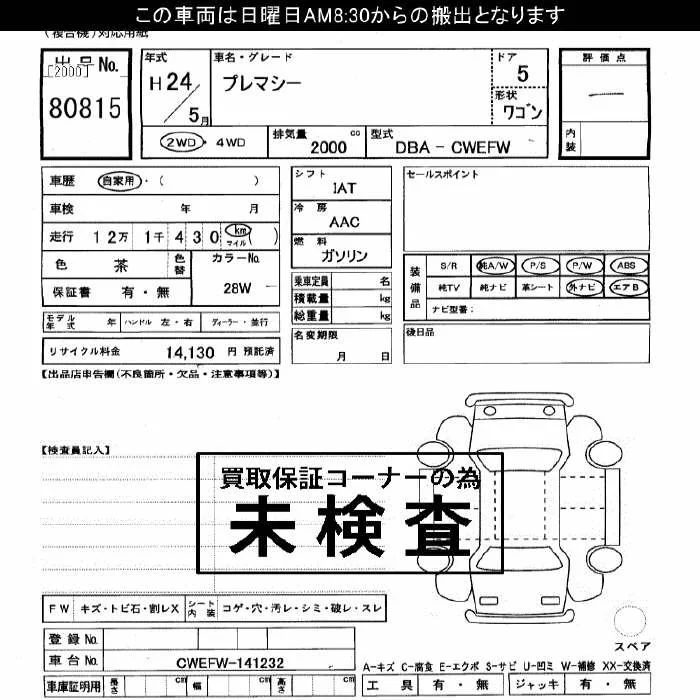 この車両は日曜日AM8:30からの搬出となります
(複合機)対応用紙
出品No.
[2000]
80815
年式
H24/5月
車名・グレード
プレマシー
ドア
5
形状
ワゴン
評価点
—
内装
2WD・4WD
排気量 cc
2000
型式
DBA - CWEFW
車歴 自家用・( )
車検 年 月
走行 12万 1千 430 km マイル ( )
色 茶 色替
カラーNo.
28W
保証書 有・無
シフト
IAT
冷房
AAC
燃料
ガソリン
乗車定員 名
積載量 kg
総重量 kg
セールスポイント
装備品
S/R 純A/W P/S P/W ABS
純TV 純ナビ 革シート 外ナビ エアB
ナビ型番:
モデル年式 年 ハンドル 左・右 ディーラー・並行
名変期限
月 日
後日品
リサイクル料金 14,130 円 預託済
【出品店申告欄(不良箇所・欠品・注意事項等)】
【検査員記入】
買取保証コーナーの為
未検査
FW キズ・トビ石・割レX シート内装 コゲ・穴・汚レ・シミ・破レ・スレ
スペア
登録No.
車台No. CWEFW-141232
A-キズ C-腐食 E-エクボ S-サビ U-凹ミ W-補修 XX-交換済
車庫証明用 長さ cm 幅 cm 高さ cm
工具 有・無 ジャッキ 有・無